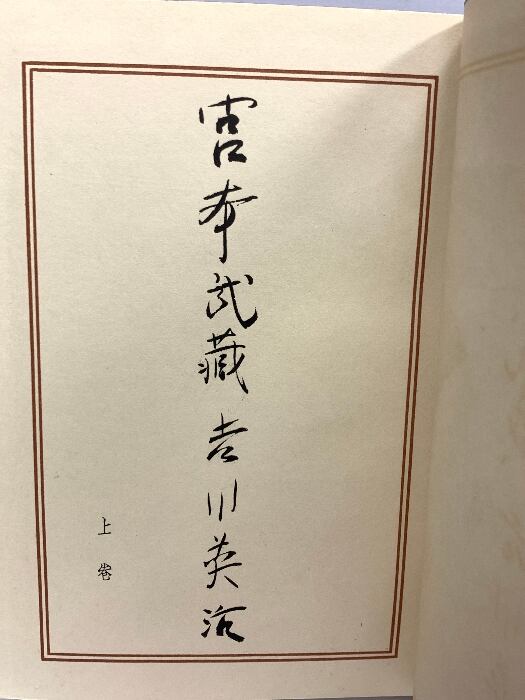 宮本武藏 吉川英治
上巻